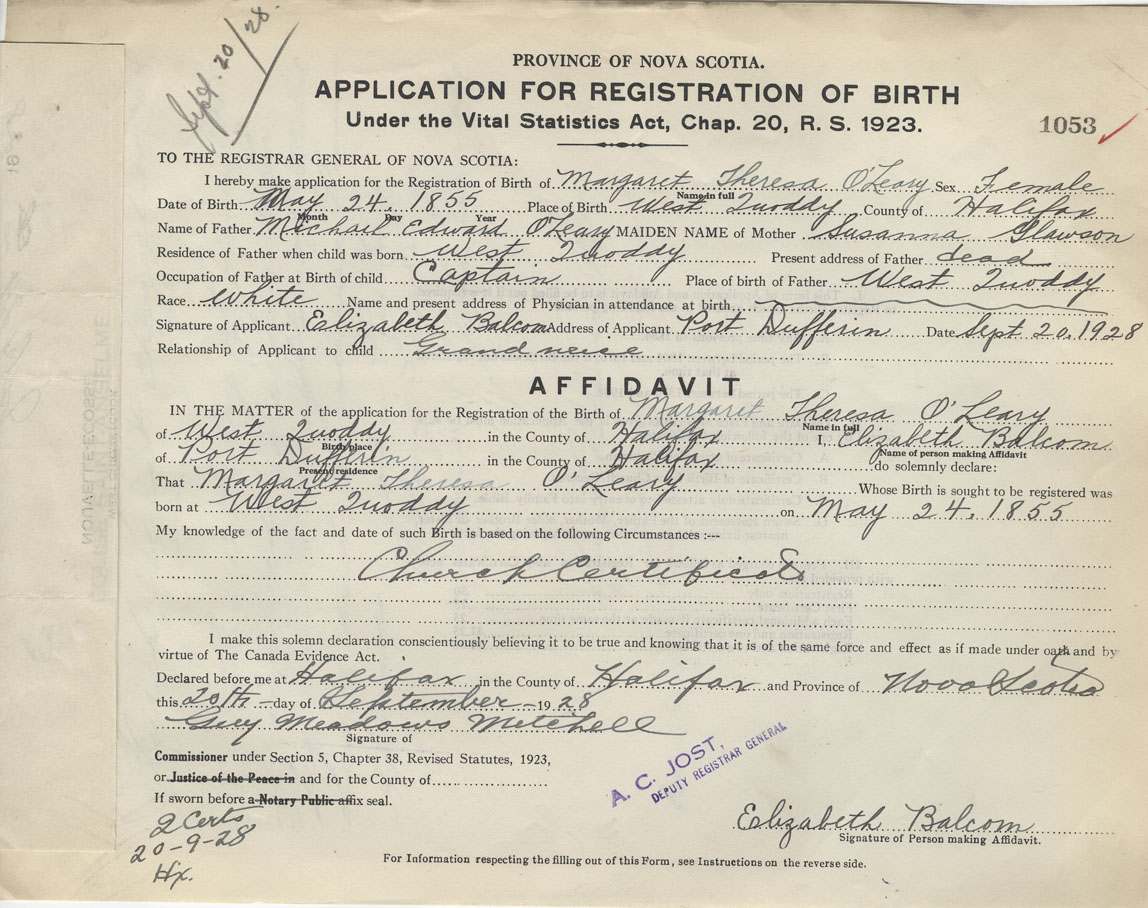 Sept. 20/28.
PROVINCE OF NOVA SCOTIA.
APPLICATION FOR REGISTRATION OF BIRTH
Under the Vital Statistics Act, Chap. 20, R. S. 1923.
1053
TO THE REGISTRAR GENERAL OF NOVA SCOTIA:
I hereby make application for the Registration of Birth of Margaret Theresa O'Leary Sex Female
Name in full
Date of Birth May 24, 1855 Place of Birth West Quoddy County of Halifax
Month Day Year
Name of Father Michail Edward O'Leary MAIDEN NAME of Mother Susanna Glawson
Residence of Father when child was born West Quoddy Present address of Father dead
Occupation of Father at Birth of child Captain Place of birth of Father West Quoddy
Race White Name and present address of Physician in attendance at birth
Signature of Applicant Elizabeth Balcom Address of Applicant Port Dufferin Date Sept 20, 1928
Relationship of Applicant to child Grand neice
AFFIDAVIT
IN THE MATTER of the application for the Registration of the Birth of Margaret Theresa O'Leary
Name in full
of West Quoddy in the County of Halifax I, Elizabeth Balcom
Birth place Name of person making Affidavit
of Port Dufferin in the County of Halifax do solemnly declare:
Present residence
That Margaret Theresa O'Leary Whose Birth is sought to be registered was
born at West Quoddy on May 24, 1855
My knowledge of the fact and date of such Birth is based on the following Circumstances :—
Church Certificate
I make this solemn declaration conscientiously believing it to be true and knowing that it is of the same force and effect as if made under oath and by
virtue of The Canada Evidence Act.
Declared before me at Halifax in the County of Halifax and Province of Nova Scotia
this 20th day of September 1928
Guy Meadows Mitchell
Signature of
Commissioner under Section 5, Chapter 38, Revised Statutes, 1923,
or Justice of the Peace in and for the County of
If sworn before a Notary Public affix seal.
A. C. JOST,
DEPUTY REGISTRAR GENERAL
2 Certs
20-9-28
Hx.
Elizabeth Balcom
Signature of Person making Affidavit.
For Information respecting the filling out of this Form, see Instructions on the reverse side.